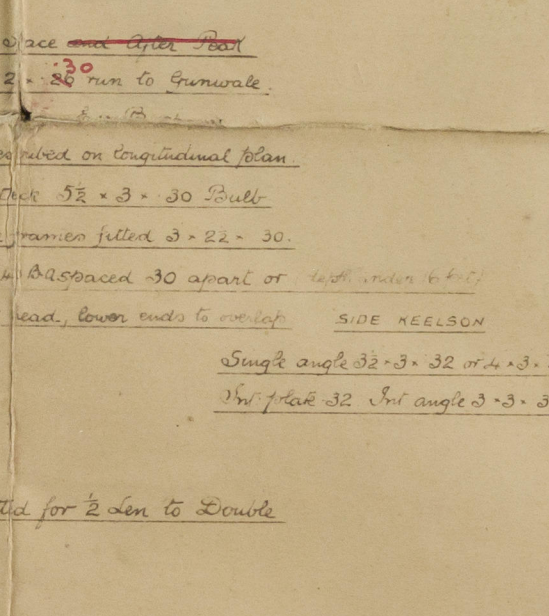 and After Peak
30
2 × 26 run to Gunwale.
on longitudinal plan.
5½ × 3 × 30 Bulb
frames fitted 3 × 2½ × 30.
spaced 30 apart or depth under 16 feet
lower ends to overlap
SIDE KEELSON
Single angle 3½ × 3 × 32 or 4 × 3 ×
Int plate 32 Int angle 3 × 3 × 3
for ½ Len to Double